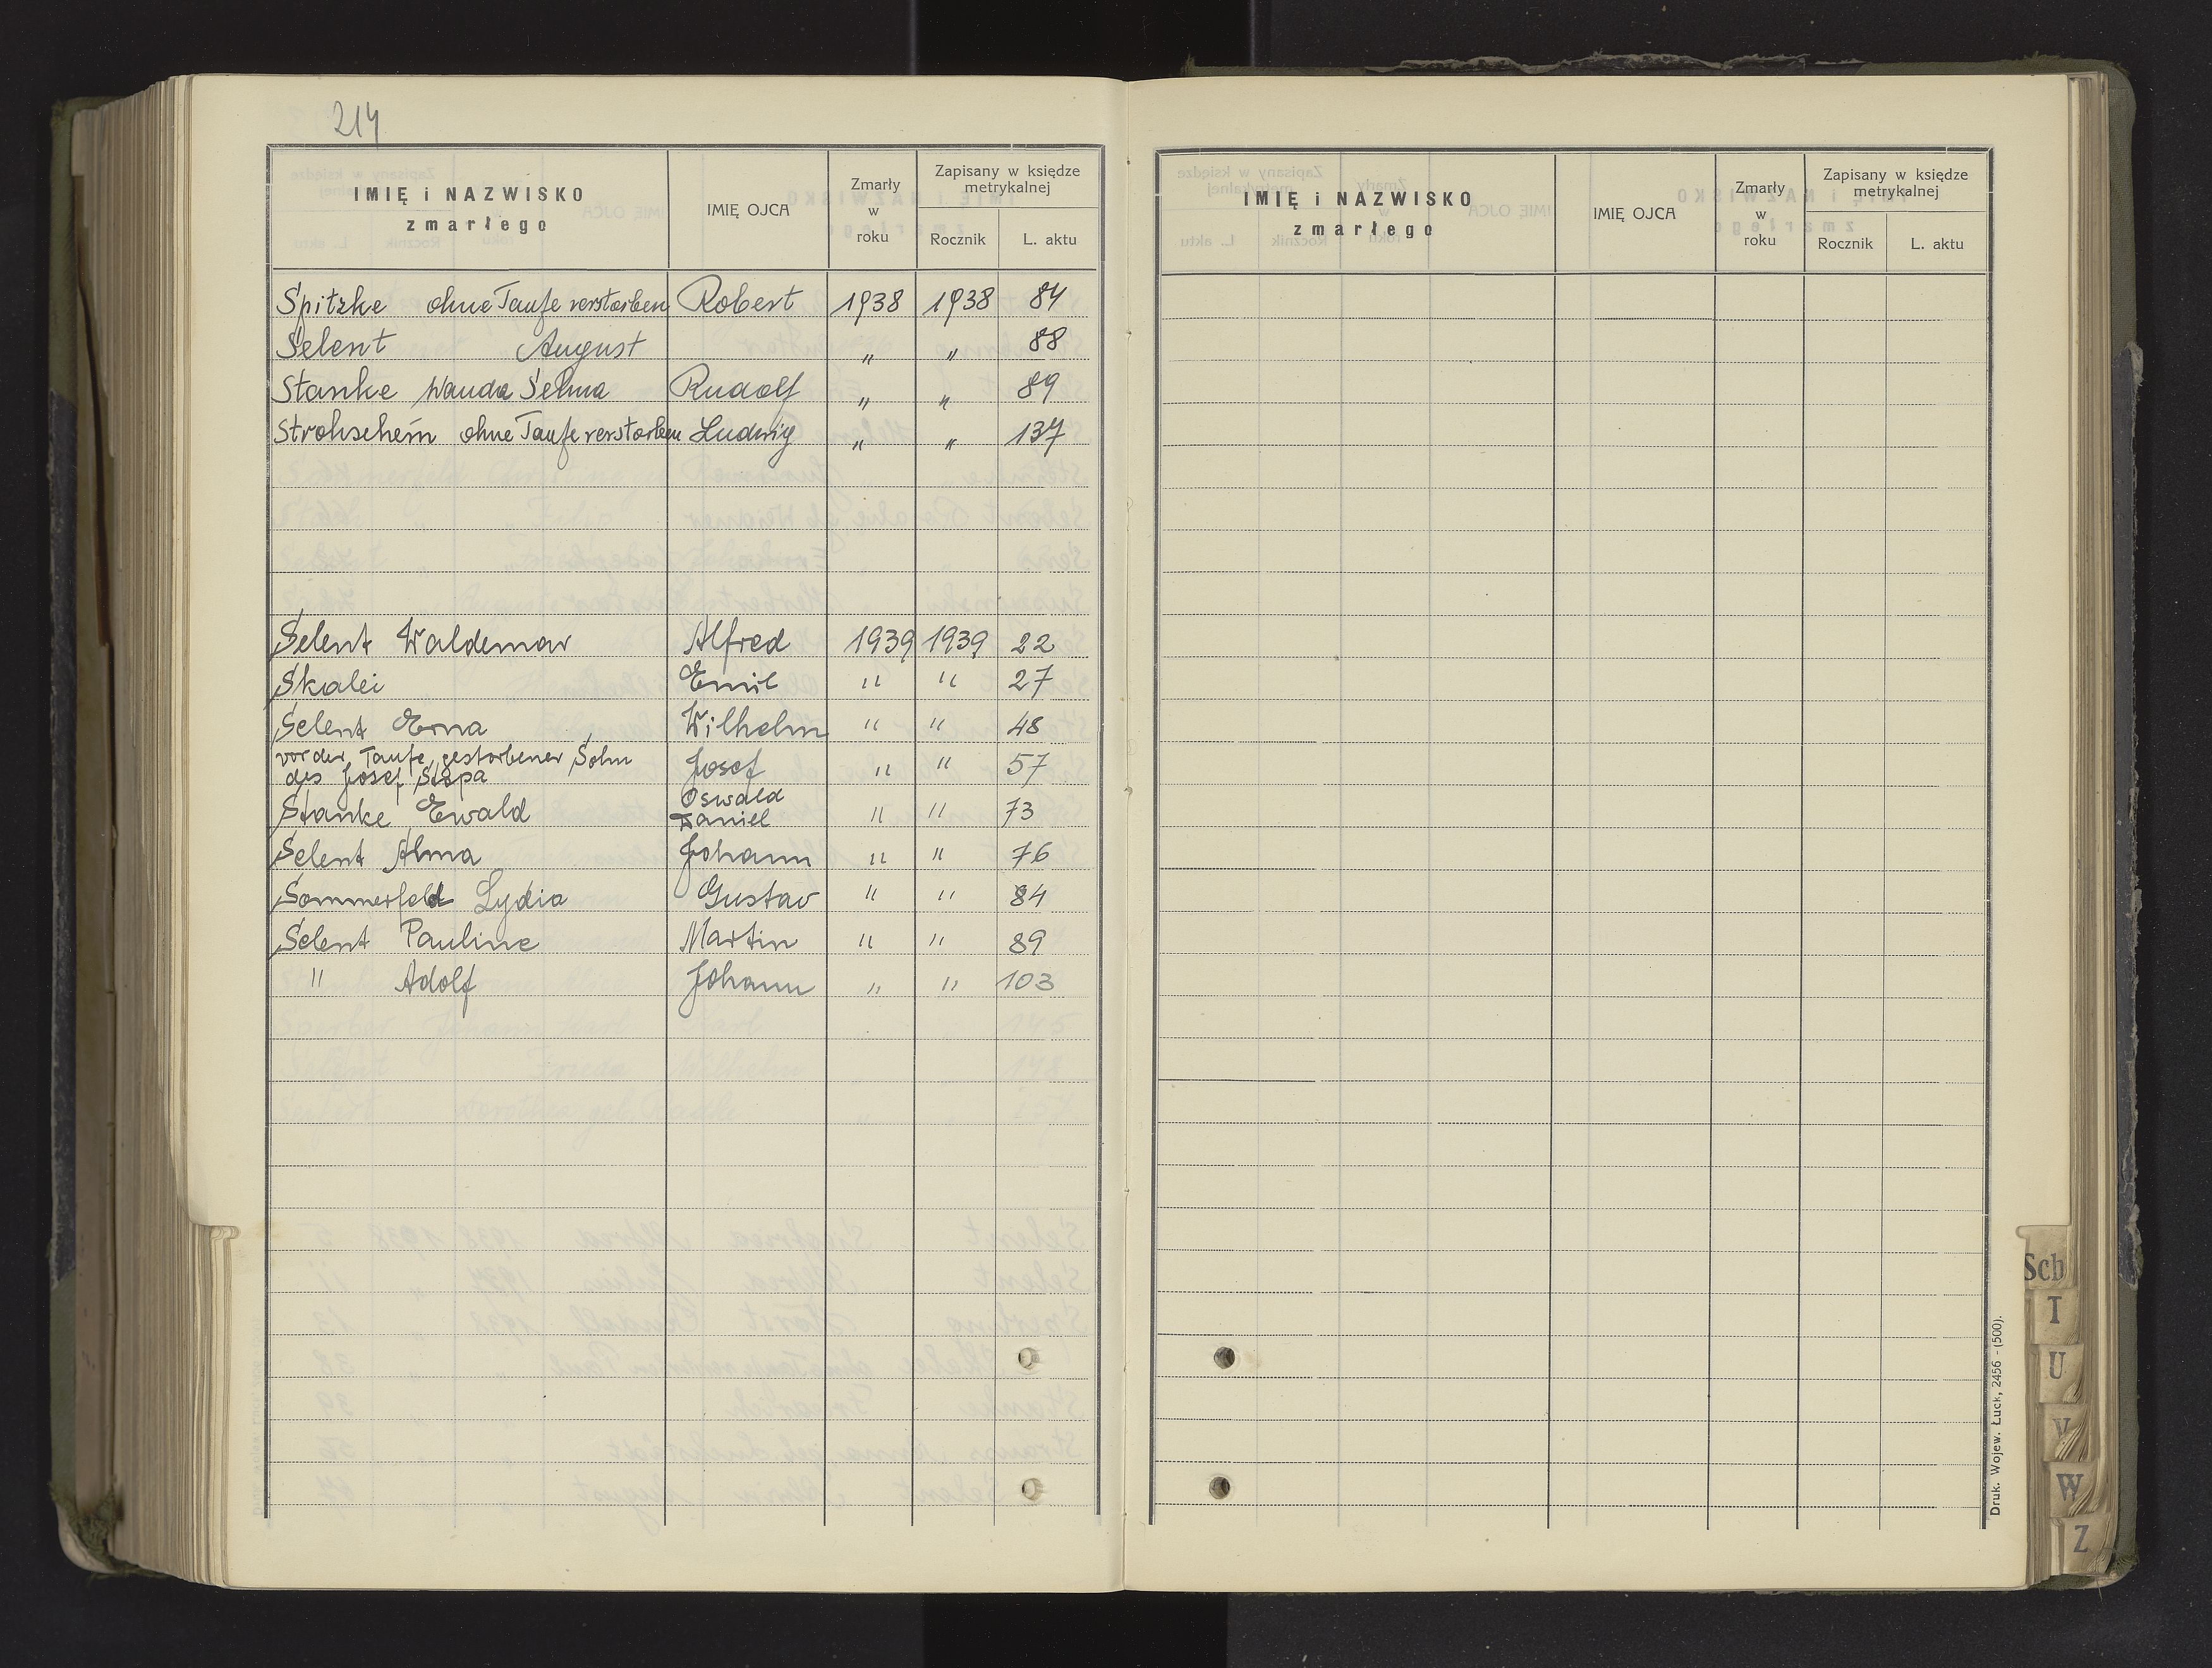 214
IMIĘ i NAZWISKO zmarłego IMIĘ OJCA Zmarły w roku Zapisany w księdze metrykalnej Rocznik L. aktu
Spitzke ohne Taufe verstorben Robert 1938 1938 84
Selent August " " 88
Stanke Wanda Selma Rudolf " " 89
Strohschein ohne Taufe verstorben Ludwig " " 137
Selent Waldemar Alfred 1939 1939 22
Skalei Emil " " 27
Selent Erna Wilhelm " " 48
vor der Taufe gestorbener Sohn
des Josef Stopa Josef " " 57
Stanke Ewald Oswald Daniel " " 73
Selent Alma Johann " " 76
Sommerfeld Lydia Gustav " " 84
Selent Pauline Martin " " 89
" Adolf Johann " " 103
IMIĘ i NAZWISKO zmarłego IMIĘ OJCA Zmarły w roku Zapisany w księdze metrykalnej Rocznik L. aktu
Druk. Wojew. Łuck, 2456 - (500).
Sch
T
U
V
W
Z